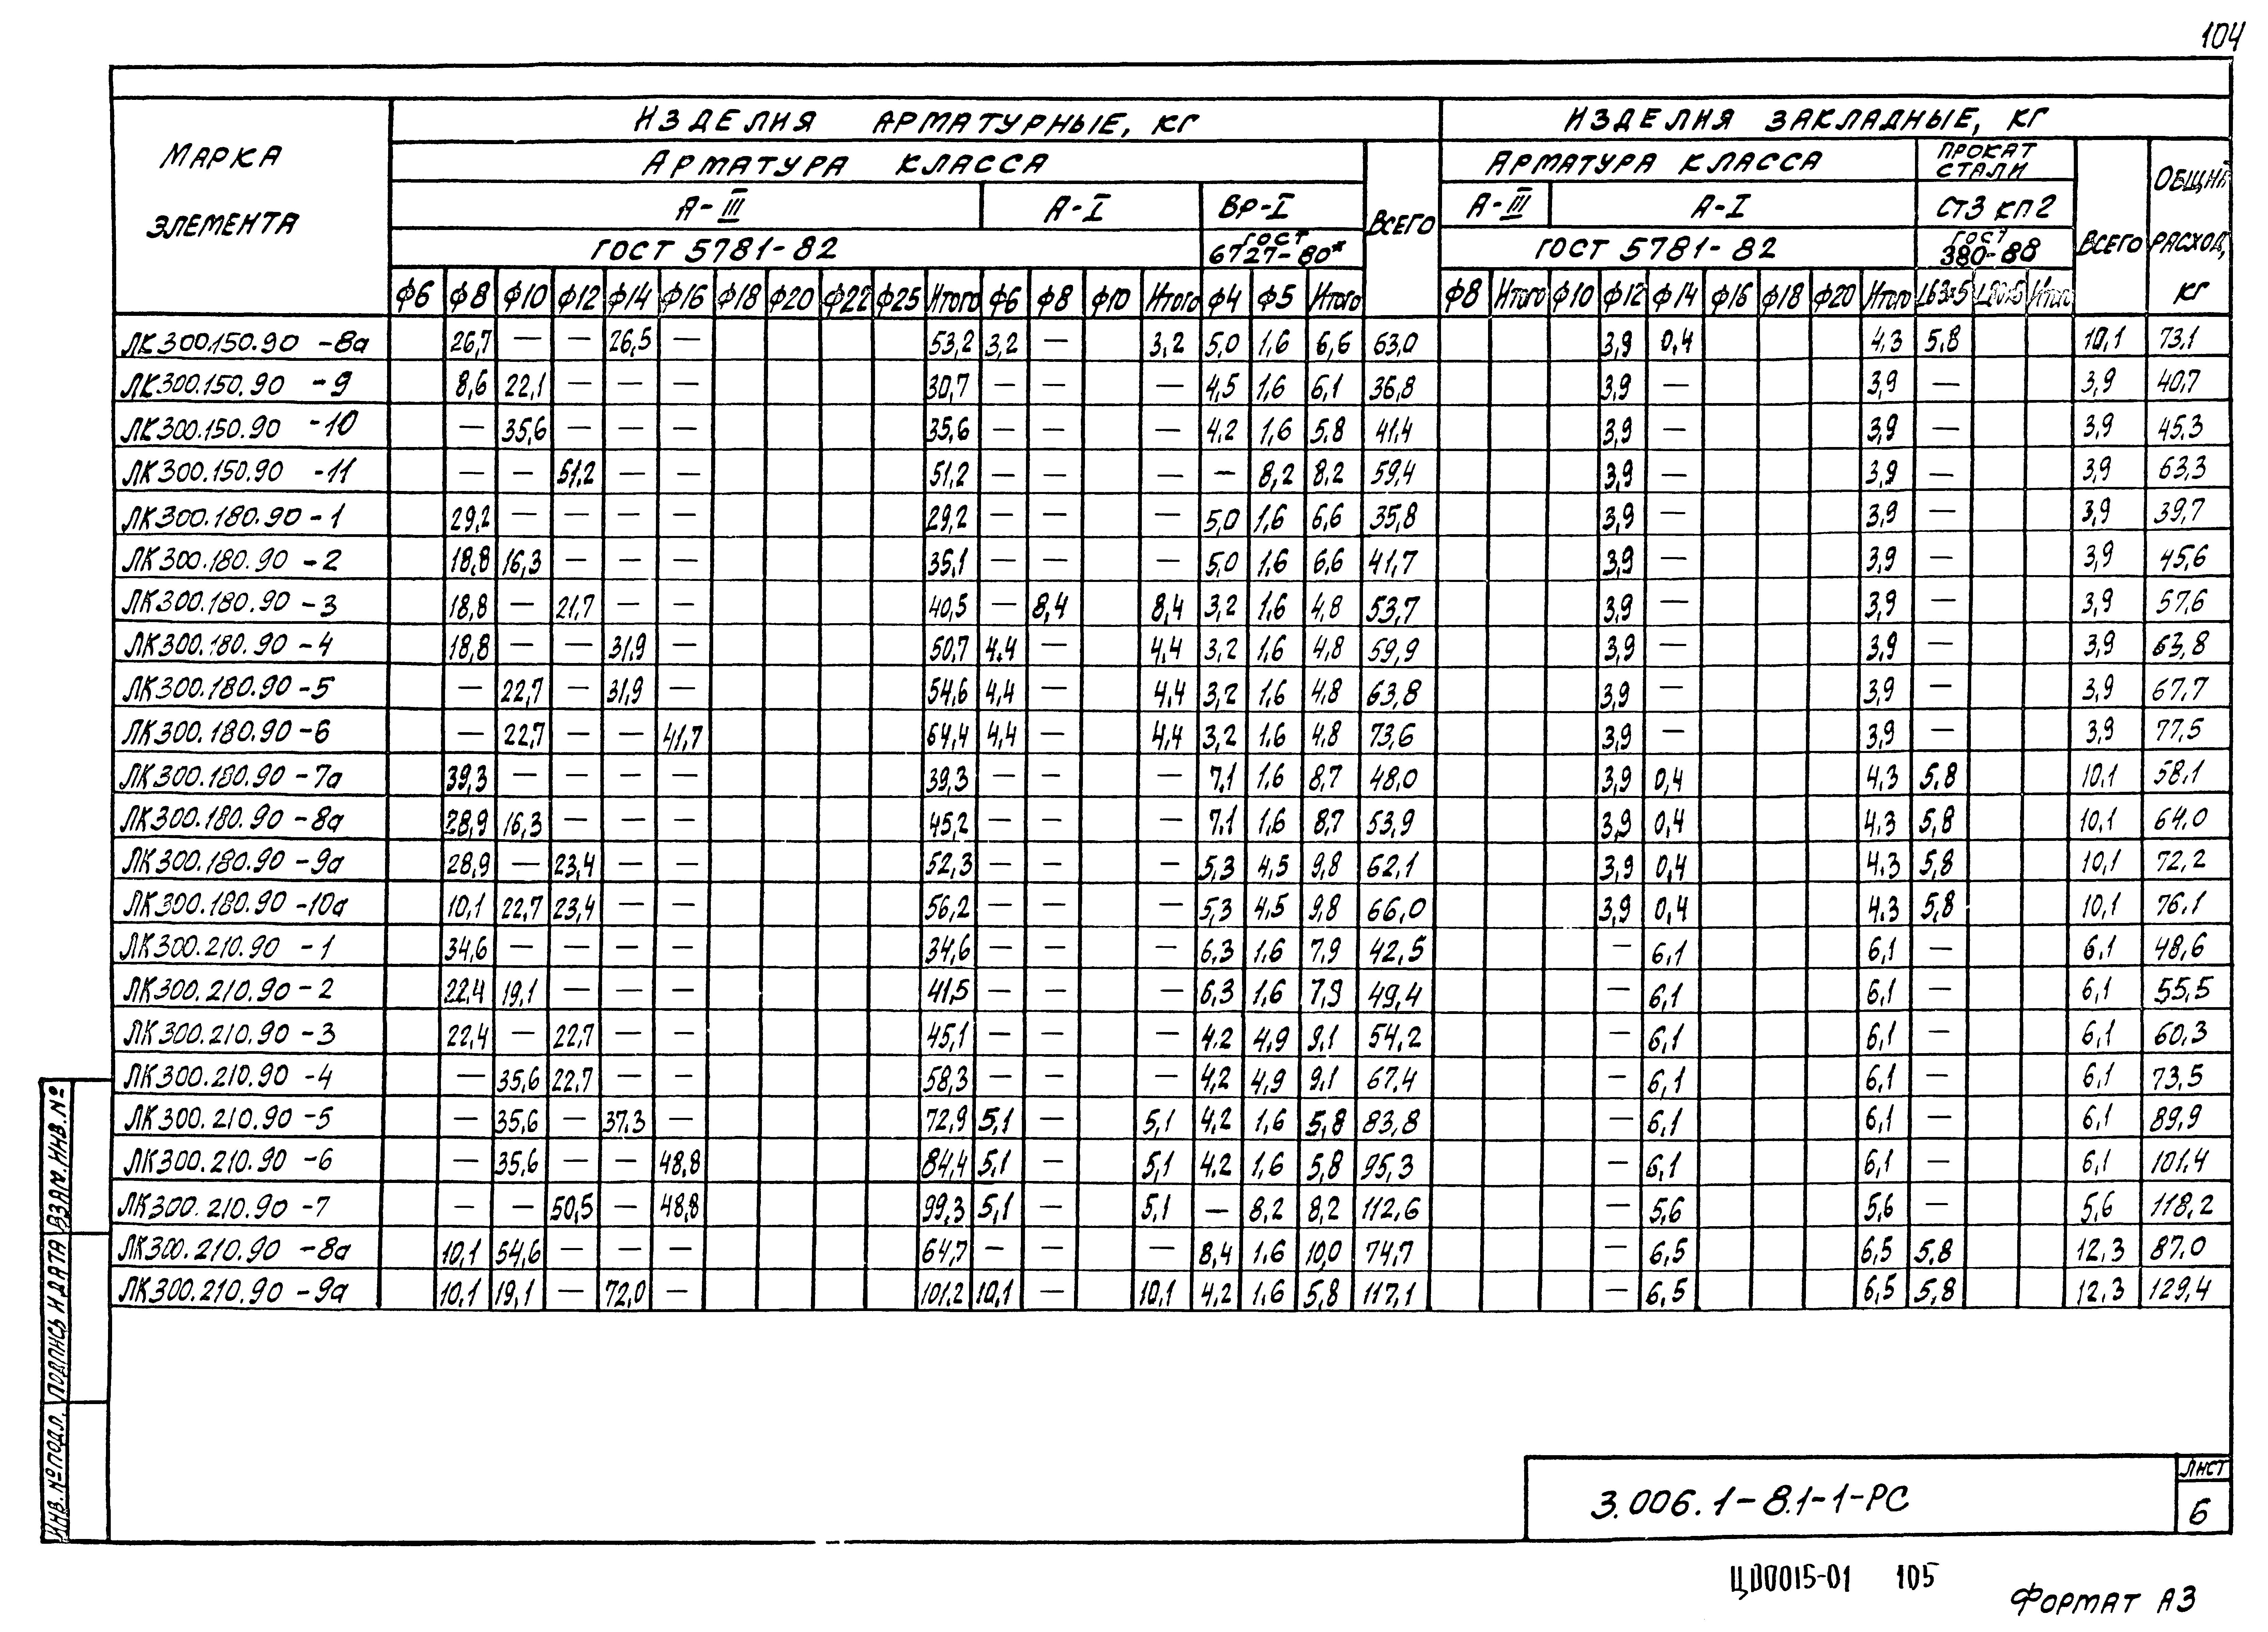 104
МАРКА ЭЛЕМЕНТА
ИЗДЕЛИЯ АРМАТУРНЫЕ, КГ
ИЗДЕЛИЯ ЗАКЛАДНЫЕ, КГ
АРМАТУРА КЛАССА
ВСЕГО
АРМАТУРА КЛАССА
ПРОКАТ СТАЛИ
ВСЕГО
ОБЩИЙ РАСХОД, КГ
А-III А-I ВР-I А-III А-I СТ3 КП2
ГОСТ 5781-82 ГОСТ 6727-80* ГОСТ 5781-82 ГОСТ 380-88
ф6 ф8 ф10 ф12 ф14 ф16 ф18 ф20 ф22 ф25 Итого ф6 ф8 ф10 Итого ф4 ф5 Итого ф8 Итого ф10 ф12 ф14 ф16 ф18 ф20 Итого L63×5 Итого
ЛК300.150.90 -8а 26,7 — — 26,5 — 53,2 3,2 — 3,2 5,0 1,6 6,6 63,0 3,9 0,4 4,3 5,8 10,1 73,1
ЛК300.150.90 -9 8,6 22,1 — — — 30,7 — — — 4,5 1,6 6,1 36,8 3,9 — 3,9 — 3,9 40,7
ЛК300.150.90 -10 — 35,6 — — — 35,6 — — — 4,2 1,6 5,8 41,4 3,9 — 3,9 — 3,9 45,3
ЛК300.150.90 -11 — — 51,2 — — 51,2 — — — — 8,2 8,2 59,4 3,9 — 3,9 — 3,9 63,3
ЛК300.180.90 -1 29,2 — — — — 29,2 — — — 5,0 1,6 6,6 35,8 3,9 — 3,9 — 3,9 39,7
ЛК300.180.90 -2 18,8 16,3 — — — 35,1 — — — 5,0 1,6 6,6 41,7 3,9 — 3,9 — 3,9 45,6
ЛК300.180.90 -3 18,8 — 21,7 — — 40,5 — 8,4 8,4 3,2 1,6 4,8 53,7 3,9 — 3,9 — 3,9 57,6
ЛК300.180.90 -4 18,8 — — 31,9 — 50,7 4,4 — 4,4 3,2 1,6 4,8 59,9 3,9 — 3,9 — 3,9 63,8
ЛК300.180.90 -5 — 22,7 — 31,9 — 54,6 4,4 — 4,4 3,2 1,6 4,8 63,8 3,9 — 3,9 — 3,9 67,7
ЛК300.180.90 -6 — 22,7 — — 41,7 64,4 4,4 — 4,4 3,2 1,6 4,8 73,6 3,9 — 3,9 — 3,9 77,5
ЛК300.180.90 -7а 39,3 — — — — 39,3 — — — 7,1 1,6 8,7 48,0 3,9 0,4 4,3 5,8 10,1 58,1
ЛК300.180.90 -8а 28,9 16,3 — — — 45,2 — — — 7,1 1,6 8,7 53,9 3,9 0,4 4,3 5,8 10,1 64,0
ЛК300.180.90 -9а 28,9 — 23,4 — — 52,3 — — — 5,3 4,5 9,8 62,1 3,9 0,4 4,3 5,8 10,1 72,2
ЛК300.180.90 -10а 10,1 22,7 23,4 — — 56,2 — — — 5,3 4,5 9,8 66,0 3,9 0,4 4,3 5,8 10,1 76,1
ЛК300.210.90 -1 34,6 — — — — 34,6 — — — 6,3 1,6 7,9 42,5 — 6,1 6,1 — 6,1 48,6
ЛК300.210.90 -2 22,4 19,1 — — — 41,5 — — — 6,3 1,6 7,9 49,4 — 6,1 6,1 — 6,1 55,5
ЛК300.210.90 -3 22,4 — 22,7 — — 45,1 — — — 4,2 4,9 9,1 54,2 — 6,1 6,1 — 6,1 60,3
ЛК300.210.90 -4 — 35,6 22,7 — — 58,3 — — — 4,2 4,9 9,1 67,4 — 6,1 6,1 — 6,1 73,5
ЛК300.210.90 -5 — 35,6 — 37,3 — 72,9 5,1 — 5,1 4,2 1,6 5,8 83,8 — 6,1 6,1 — 6,1 89,9
ЛК300.210.90 -6 — 35,6 — — 48,8 84,4 5,1 — 5,1 4,2 1,6 5,8 95,3 — 6,1 6,1 — 6,1 101,4
ЛК300.210.90 -7 — — 50,5 — 48,8 99,3 5,1 — 5,1 — 8,2 8,2 112,6 — 5,6 5,6 — 5,6 118,2
ЛК300.210.90 -8а 10,1 54,6 — — — 64,7 — — — 8,4 1,6 10,0 74,7 — 6,5 6,5 5,8 12,3 87,0
ЛК300.210.90 -9а 10,1 19,1 — 72,0 — 101,2 10,1 — 10,1 4,2 1,6 5,8 117,1 — 6,5 6,5 5,8 12,3 129,4
ИНВ.№ПОДЛ. ПОДПИСЬ И ДАТА ВЗАМ.ИНВ.№
3.006.1-8.1-1-РС
ЛИСТ
6
Ц00015-01 105
ФОРМАТ А3